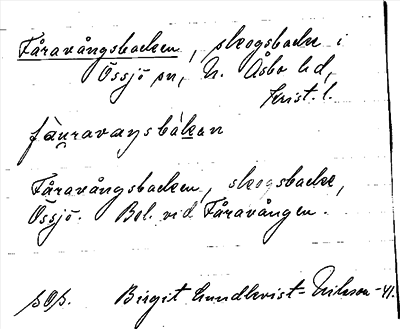 Fåravångsbacken, skogsbacke i
Össjö sn, N. Åsbo hd,
Krist. l.
fåuravaŋsbàkan
Fåravångsbacken, skogsbacke,
Össjö. Bel. vid Fåravången.
Birgit Lundkvist-Nilsson -41.